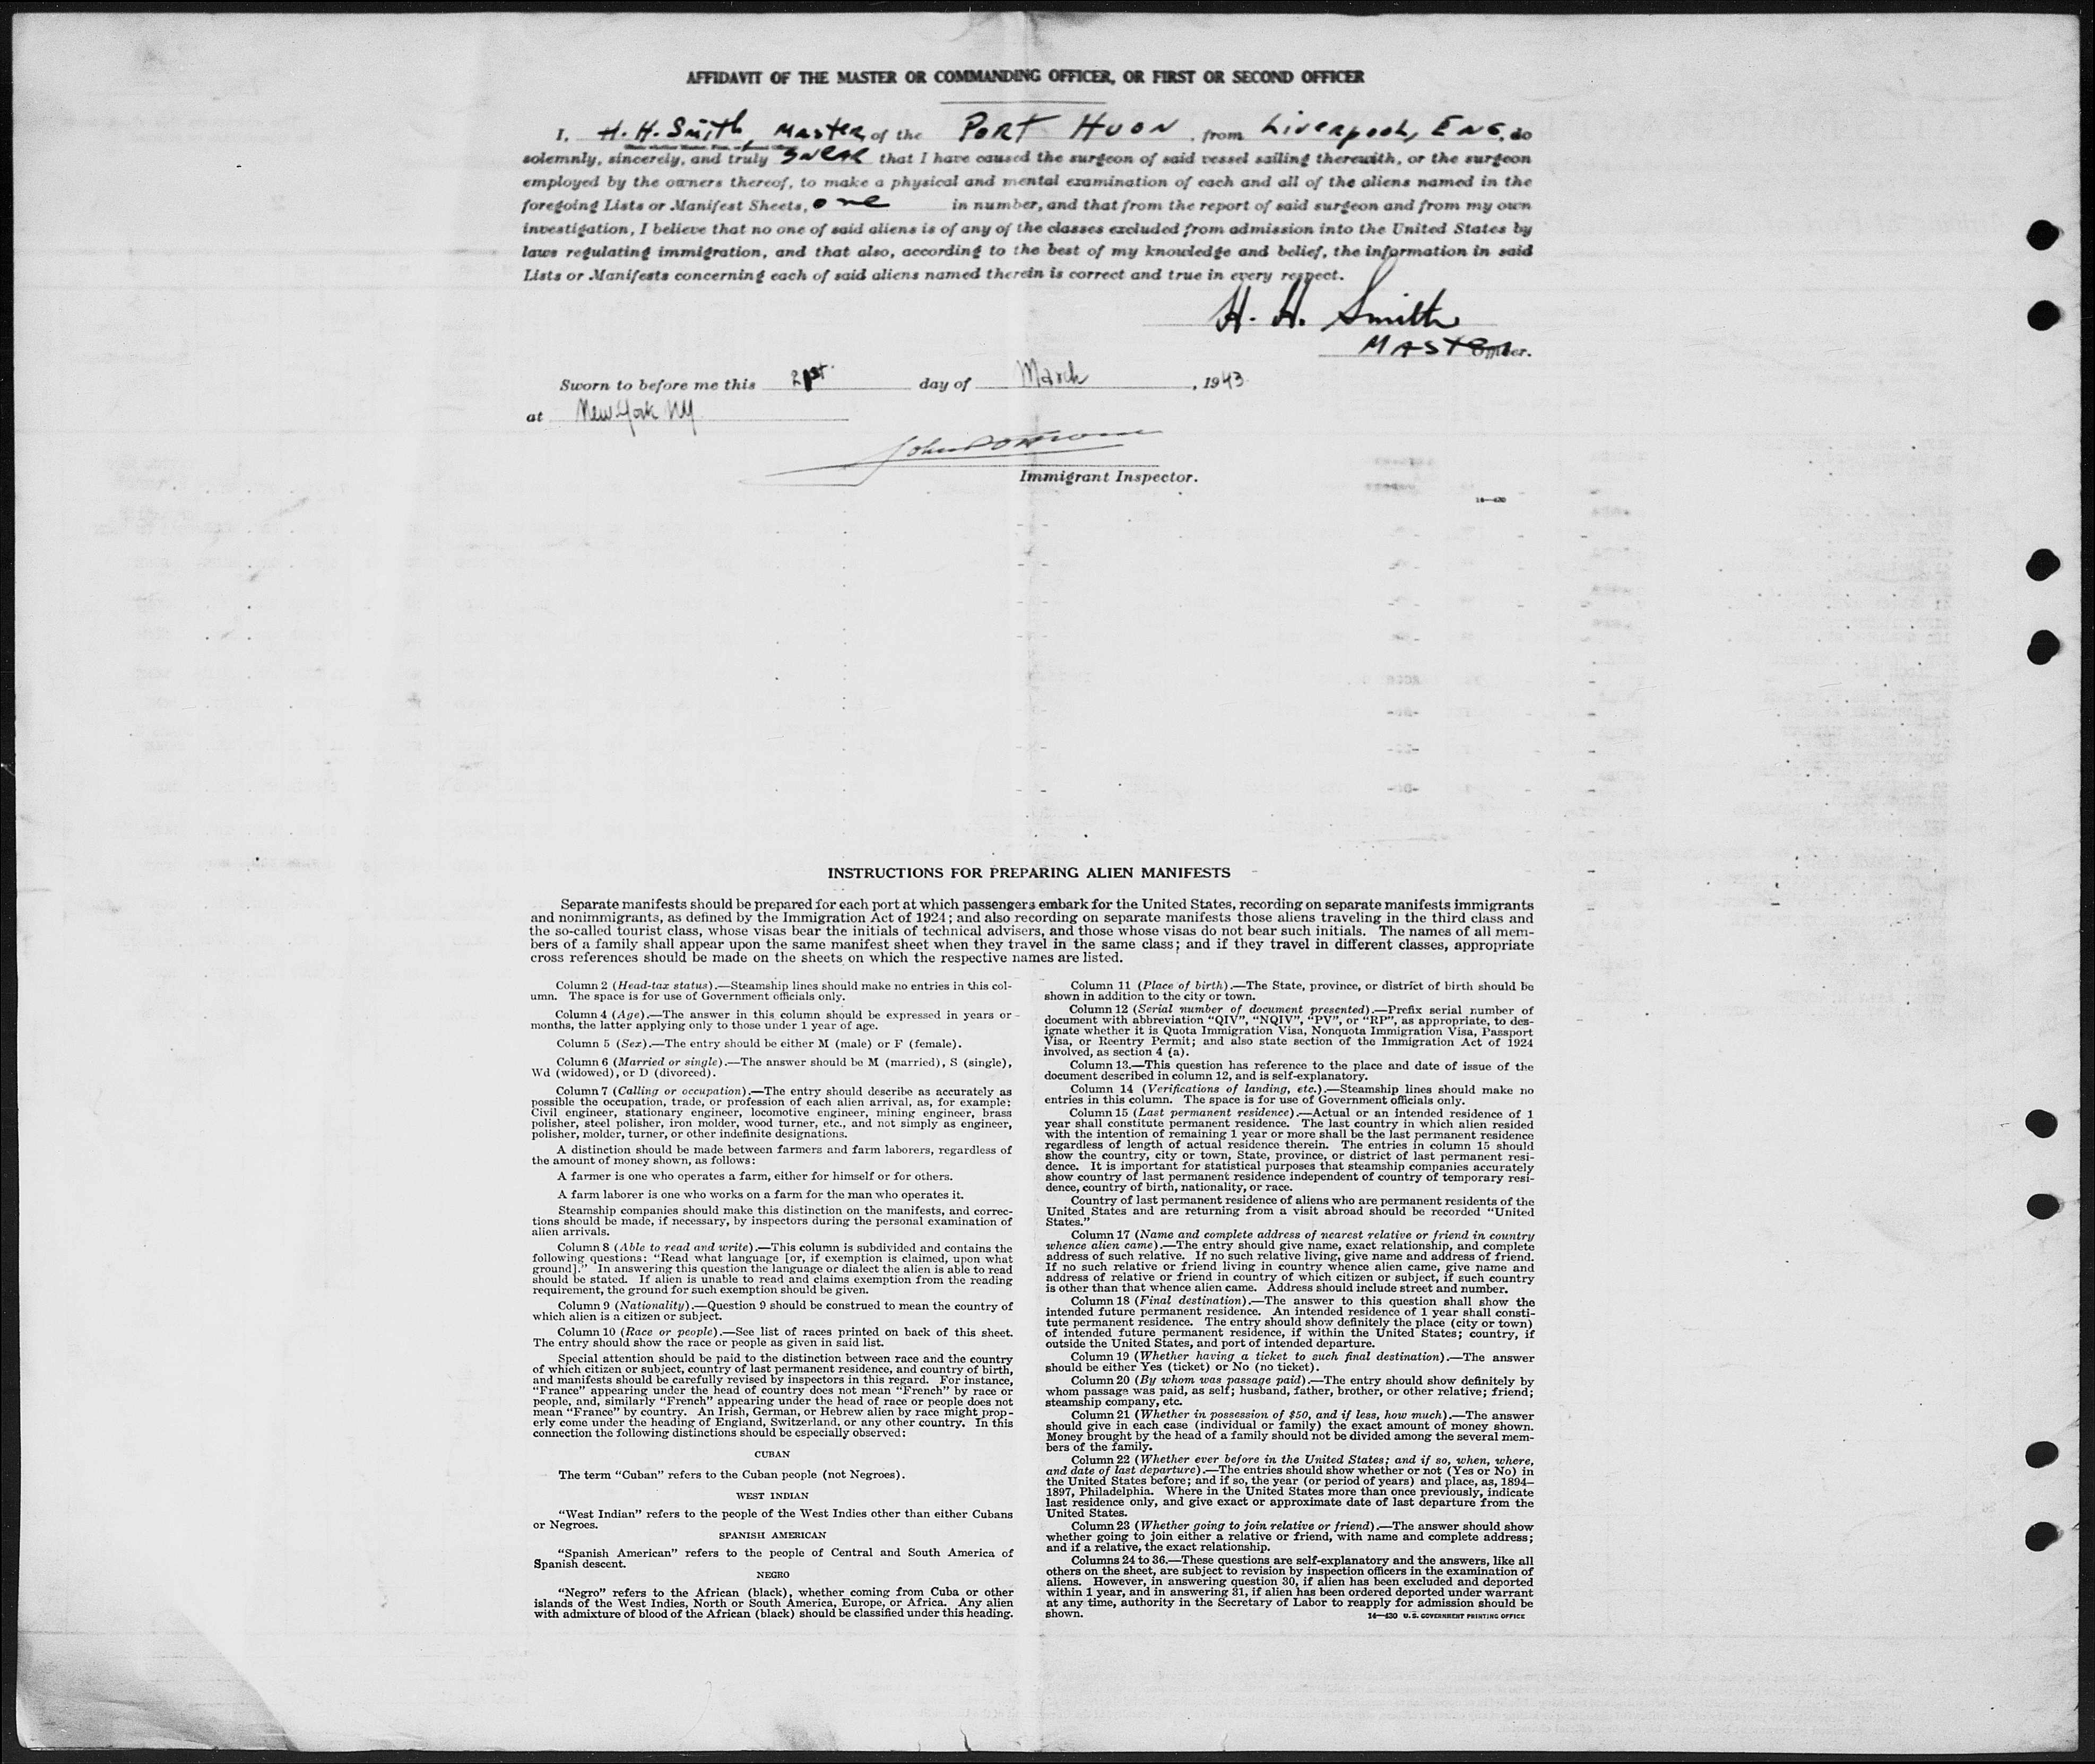 AFFIDAVIT OF THE MASTER OR COMMANDING OFFICER, OR FIRST OR SECOND OFFICER
I, H. H. Smith, Master, of the PORT HUON, from Liverpool, ENG, do
solemnly, sincerely, and truly swear that I have caused the surgeon of said vessel sailing therewith, or the surgeon
employed by the owners thereof, to make a physical and mental examination of each and all of the aliens named in the
foregoing Lists or Manifest Sheets, one in number, and that from the report of said surgeon and from my own
investigation, I believe that no one of said aliens is of any of the classes excluded from admission into the United States by
laws regulating immigration, and that also, according to the best of my knowledge and belief, the information in said
Lists or Manifests concerning each of said aliens named therein is correct and true in every respect.
H. H. Smith
MASTER Officer.
Sworn to before me this 21st day of March, 1943
at New York NY
Immigrant Inspector.
14—430
INSTRUCTIONS FOR PREPARING ALIEN MANIFESTS
Separate manifests should be prepared for each port at which passengers embark for the United States, recording on separate manifests immigrants
and nonimmigrants, as defined by the Immigration Act of 1924; and also recording on separate manifests those aliens traveling in the third class and
the so-called tourist class, whose visas bear the initials of technical advisers, and those whose visas do not bear such initials. The names of all mem-
bers of a family shall appear upon the same manifest sheet when they travel in the same class; and if they travel in different classes, appropriate
cross references should be made on the sheets on which the respective names are listed.
Column 2 (Head-tax status).—Steamship lines should make no entries in this col-
umn. The space is for use of Government officials only.
Column 4 (Age).—The answer in this column should be expressed in years or
months, the latter applying only to those under 1 year of age.
Column 5 (Sex).—The entry should be either M (male) or F (female).
Column 6 (Married or single).—The answer should be M (married), S (single),
Wd (widowed), or D (divorced).
Column 7 (Calling or occupation).—The entry should describe as accurately as
possible the occupation, trade, or profession of each alien arrival, as, for example:
Civil engineer, stationary engineer, locomotive engineer, mining engineer, brass
polisher, steel polisher, iron molder, wood turner, etc., and not simply as engineer,
polisher, molder, turner, or other indefinite designations.
A distinction should be made between farmers and farm laborers, regardless of
the amount of money shown, as follows:
A farmer is one who operates a farm, either for himself or for others.
A farm laborer is one who works on a farm for the man who operates it.
Steamship companies should make this distinction on the manifests, and correc-
tions should be made, if necessary, by inspectors during the personal examination of
alien arrivals.
Column 8 (Able to read and write).—This column is subdivided and contains the
following questions: “Read what language [or, if exemption is claimed, upon what
ground].” In answering this question the language or dialect the alien is able to read
should be stated. If alien is unable to read and claims exemption from the reading
requirement, the ground for such exemption should be given.
Column 9 (Nationality).—Question 9 should be construed to mean the country of
which alien is a citizen or subject.
Column 10 (Race or people).—See list of races printed on back of this sheet.
The entry should show the race or people as given in said list.
Special attention should be paid to the distinction between race and the country
of which citizen or subject, country of last permanent residence, and country of birth,
and manifests should be carefully revised by inspectors in this regard. For instance,
“France” appearing under the head of country does not mean “French” by race or
people, and, similarly “French” appearing under the head of race or people does not
mean “France” by country. An Irish, German, or Hebrew alien by race might prop-
erly come under the heading of England, Switzerland, or any other country. In this
connection the following distinctions should be especially observed:
CUBAN
The term “Cuban” refers to the Cuban people (not Negroes).
WEST INDIAN
“West Indian” refers to the people of the West Indies other than either Cubans
or Negroes.
SPANISH AMERICAN
“Spanish American” refers to the people of Central and South America of
Spanish descent.
NEGRO
“Negro” refers to the African (black), whether coming from Cuba or other
islands of the West Indies, North or South America, Europe, or Africa. Any alien
with admixture of blood of the African (black) should be classified under this heading.
Column 11 (Place of birth).—The State, province, or district of birth should be
shown in addition to the city or town.
Column 12 (Serial number of document presented).—Prefix serial number of
document with abbreviation “QIV”, “NQIV”, “PV”, or “RP”, as appropriate, to des-
ignate whether it is Quota Immigration Visa, Nonquota Immigration Visa, Passport
Visa, or Reentry Permit; and also state section of the Immigration Act of 1924
involved, as section 4 (a).
Column 13.—This question has reference to the place and date of issue of the
document described in column 12, and is self-explanatory.
Column 14 (Verifications of landing, etc.).—Steamship lines should make no
entries in this column. The space is for use of Government officials only.
Column 15 (Last permanent residence).—Actual or an intended residence of 1
year shall constitute permanent residence. The last country in which alien resided
with the intention of remaining 1 year or more shall be the last permanent residence
regardless of length of actual residence therein. The entries in column 15 should
show the country, city or town, State, province, or district of last permanent resi-
dence. It is important for statistical purposes that steamship companies accurately
show country of last permanent residence independent of country of temporary resi-
dence, country of birth, nationality, or race.
Country of last permanent residence of aliens who are permanent residents of the
United States and are returning from a visit abroad should be recorded “United
States.”
Column 17 (Name and complete address of nearest relative or friend in country
whence alien came).—The entry should give name, exact relationship, and complete
address of such relative. If no such relative living, give name and address of friend.
If no such relative or friend living in country whence alien came, give name and
address of relative or friend in country of which citizen or subject, if such country
is other than that whence alien came. Address should include street and number.
Column 18 (Final destination).—The answer to this question shall show the
intended future permanent residence. An intended residence of 1 year shall consti-
tute permanent residence. The entry should show definitely the place (city or town)
of intended future permanent residence, if within the United States; country, if
outside the United States, and port of intended departure.
Column 19 (Whether having a ticket to such final destination).—The answer
should be either Yes (ticket) or No (no ticket).
Column 20 (By whom was passage paid).—The entry should show definitely by
whom passage was paid, as self; husband, father, brother, or other relative; friend;
steamship company, etc.
Column 21 (Whether in possession of $50, and if less, how much).—The answer
should give in each case (individual or family) the exact amount of money shown.
Money brought by the head of a family should not be divided among the several mem-
bers of the family.
Column 22 (Whether ever before in the United States; and if so, when, where,
and date of last departure).—The entries should show whether or not (Yes or No) in
the United States before; and if so, the year (or period of years) and place, as, 1894–
1897, Philadelphia. Where in the United States more than once previously, indicate
last residence only, and give exact or approximate date of last departure from the
United States.
Column 23 (Whether going to join relative or friend).—The answer should show
whether going to join either a relative or friend, with name and complete address;
and if a relative, the exact relationship.
Columns 24 to 36.—These questions are self-explanatory and the answers, like all
others on the sheet, are subject to revision by inspection officers in the examination of
aliens. However, in answering question 30, if alien has been excluded and deported
within 1 year, and in answering 31, if alien has been ordered deported under warrant
at any time, authority in the Secretary of Labor to reapply for admission should be
shown.
14—430 U. S. GOVERNMENT PRINTING OFFICE